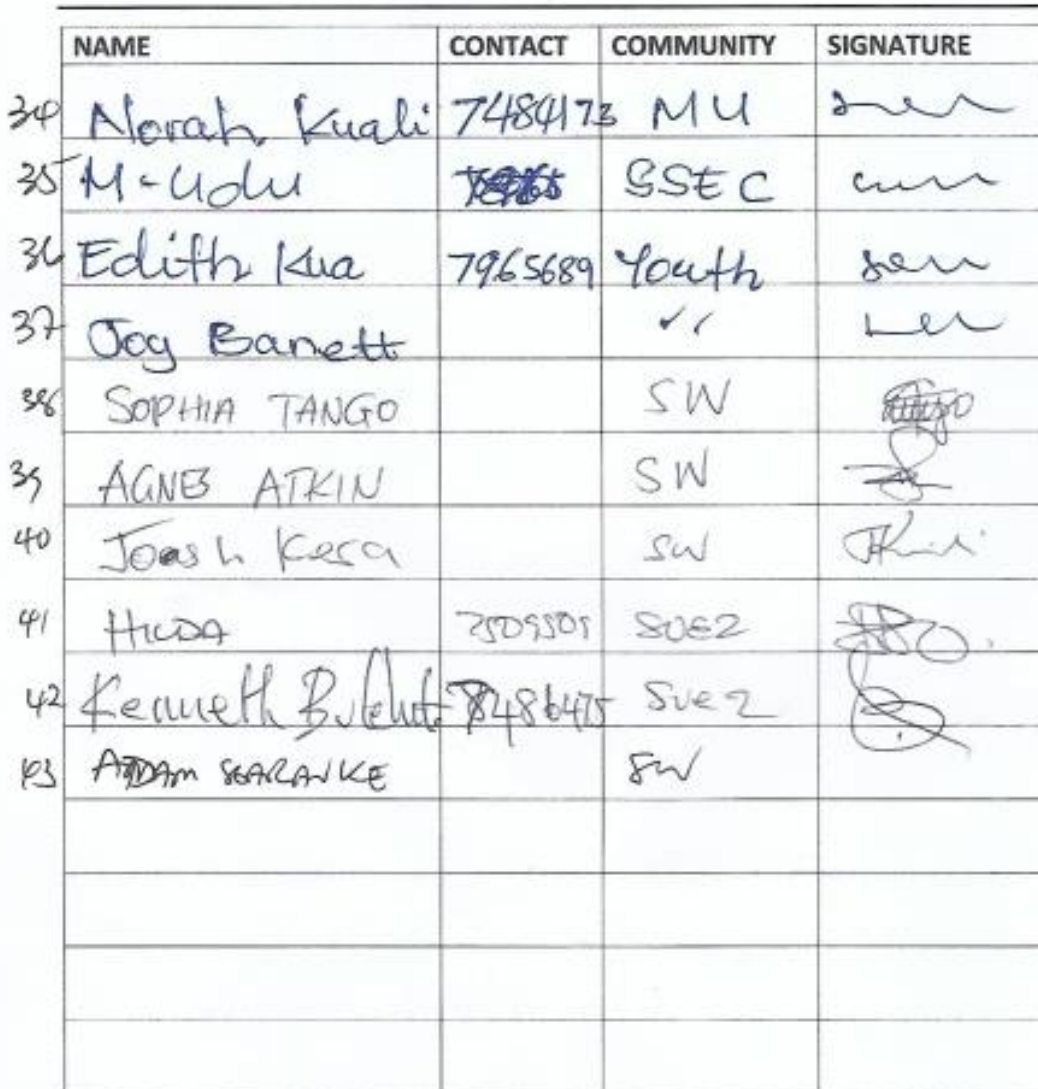 NAME CONTACT COMMUNITY SIGNATURE
34 Norah Kuali 7484173 MU
35 M-Udu SSEC
36 Edith Kua 7965689 Youth
37 Joy Banett
38 SOPHIA TANGO SW
39 AGNES ATKIN SW
40 Joash Kesa SW
41 HILDA 7509501 SUEZ
42 Kenneth 8486475 Suez
43 ADAM SW